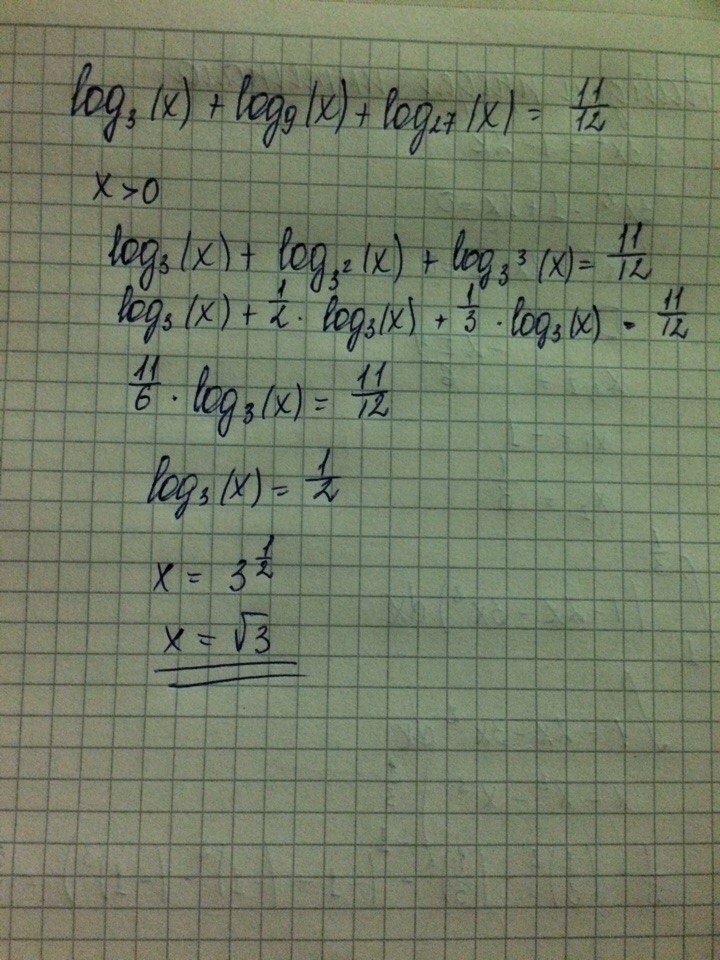 log₃(x) + log₉(x) + log₂₇(x) = 11/12
x > 0
log₃(x) + log₃²(x) + log₃³(x) = 11/12
log₃(x) + 1/2 · log₃(x) + 1/3 · log₃(x) = 11/12
11/6 · log₃(x) = 11/12
log₃(x) = 1/2
x = 3^(1/2)
x = √3